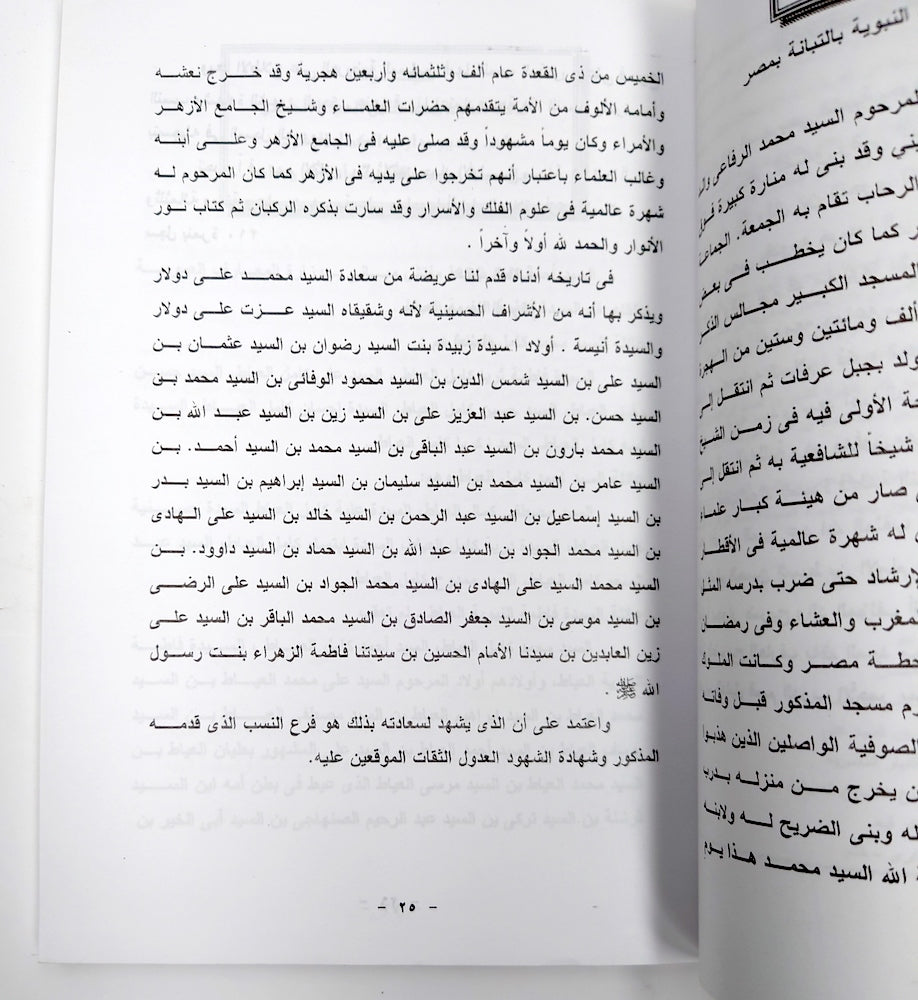 النبوية بالتبانة بمصر
المرحوم السيد محمد الرفاعى
وقد بنى له منارة كبيرة
الرحاب تقام به الجمعة. الجماعة
كما كان يخطب فى بعض
المسجد الكبير مجالس الذكر
ألف ومائتين وستين من الهجرة
ولد بجبل عرفات ثم انتقل إلى
الأولى فيه فى زمن الشيخ
شيخاً للشافعية به ثم انتقل إلى
صار من هيئة كبار علماء
له شهرة عالمية فى الأقطار
الإرشاد حتى ضرب بدرسه المثل
المغرب والعشاء وفى رمضان
محطة مصر وكانت الملوك
مسجد المذكور قبل وفاته
الصوفية الواصلين الذين هذبوا
يخرج من منزله بدرب
وبنى الضريح له ولابنه
الله السيد محمد هذا يوم
الخميس من ذى القعدة عام ألف وثلثمائه وأربعين هجرية وقد خرج نعشه
وأمامه الألوف من الأمة يتقدمهم حضرات العلماء وشيخ الجامع الأزهر
والأمراء وكان يوماً مشهوداً وقد صلى عليه فى الجامع الأزهر وعلى أبنه
وغالب العلماء باعتبار أنهم تخرجوا على يديه فى الأزهر كما كان المرحوم له
شهرة عالمية فى علوم الفلك والأسرار وقد سارت بذكره الركبان ثم كتاب نور
الأنوار والحمد لله أولاً وآخراً .
فى تاريخه أدناه قدم لنا عريضة من سعادة السيد محمد على دولار
ويذكر بها أنه من الأشراف الحسينية لأنه وشقيقاه السيد عزت على دولار
والسيدة أنيسة . أولاد اسيدة زبيدة بنت السيد رضوان بن السيد عثمان بن
السيد على بن السيد شمس الدين بن السيد محمود الوفائى بن السيد محمد بن
السيد حسن. بن السيد عبد العزيز على بن السيد زين بن السيد عبد الله بن
السيد محمد بارون بن السيد عبد الباقى بن السيد محمد بن السيد أحمد. بن
السيد عامر بن السيد محمد بن السيد سليمان بن السيد إبراهيم بن السيد بدر
بن السيد إسماعيل بن السيد عبد الرحمن بن السيد خالد بن السيد على الهادى
بن السيد محمد الجواد بن السيد عبد الله بن السيد حماد بن السيد داوود. بن
السيد محمد السيد على الهادى بن السيد محمد الجواد بن السيد على الرضى
بن السيد موسى بن السيد جعفر الصادق بن السيد محمد الباقر بن السيد على
زين العابدين بن سيدنا الأمام الحسين بن سيدتنا فاطمة الزهراء بنت رسول
الله ﷺ .
واعتمد على أن الذى يشهد لسعادته بذلك هو فرع النسب الذى قدمه
المذكور وشهادة الشهود العدول الثقات الموقعين عليه.
- ٢٥ -